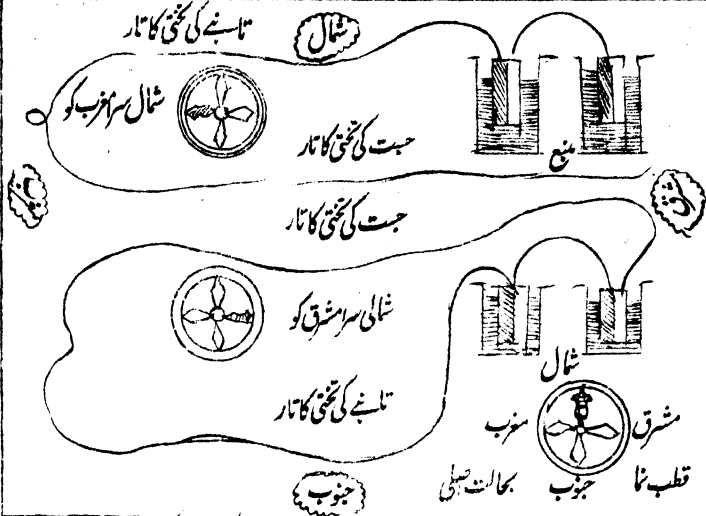 شمال
تانبے کی تختی کا تار
شمال سرا مغرب کو
جست کی تختی کا تار
منبع
مغرب
مشرق
جست کی تختی کا تار
شمالی سرا مشرق کو
تانبے کی تختی کا تار
شمال
مشرق
مغرب
قطب نما
جنوب
بحالت اصلی
جنوب